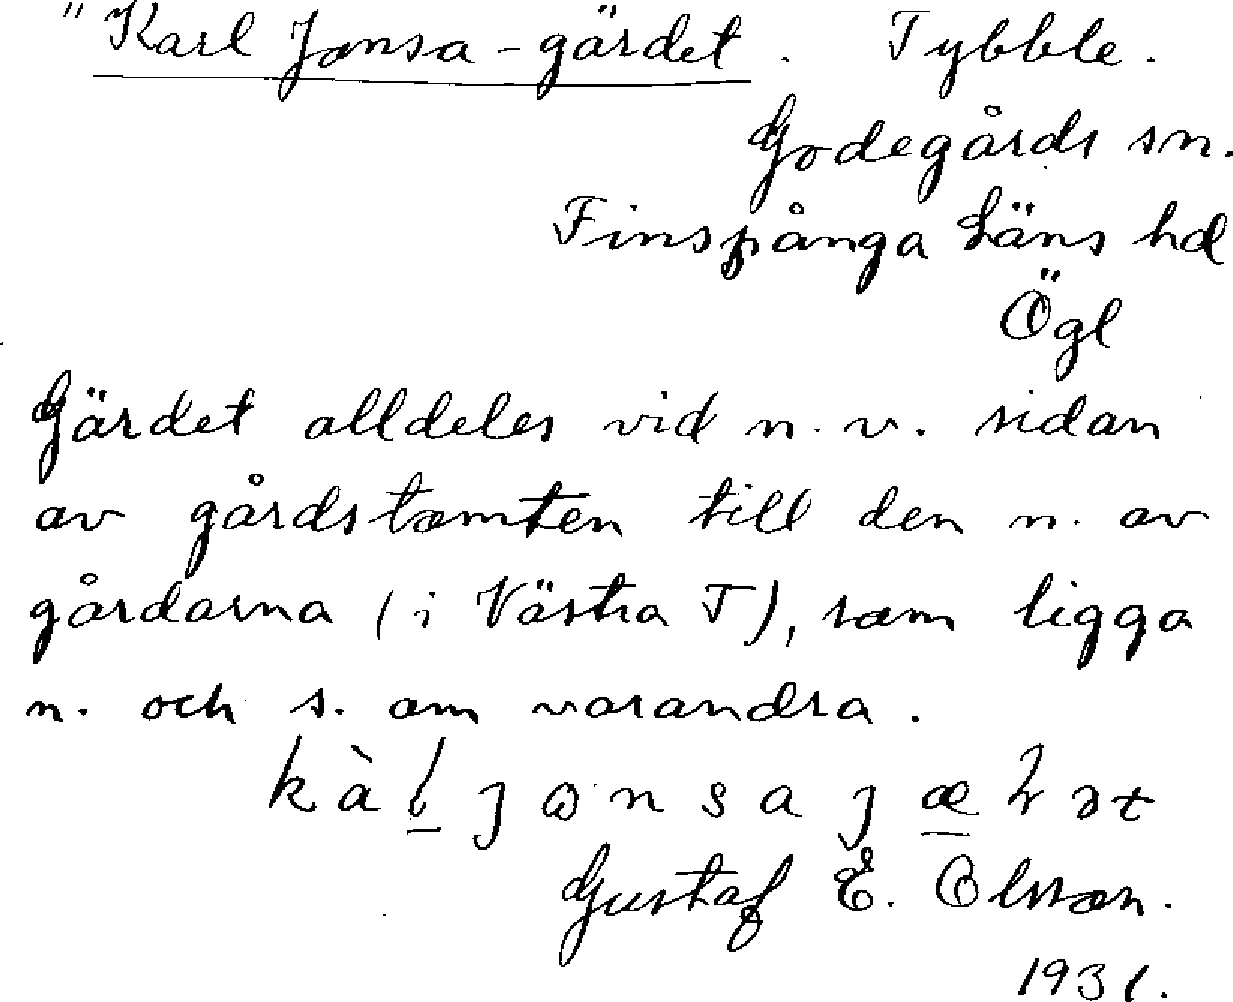 "Karl Jonsa-gärdet. Tybble.
Godegårds sn.
Finspånga Läns hd
Ögl
Gärdet alldeles vid n.v. sidan
av gårdstomten till den n. av
gårdarna (i Västra T), som ligga
n. och s. om varandra.
Gustaf E. Olsson.
1931.